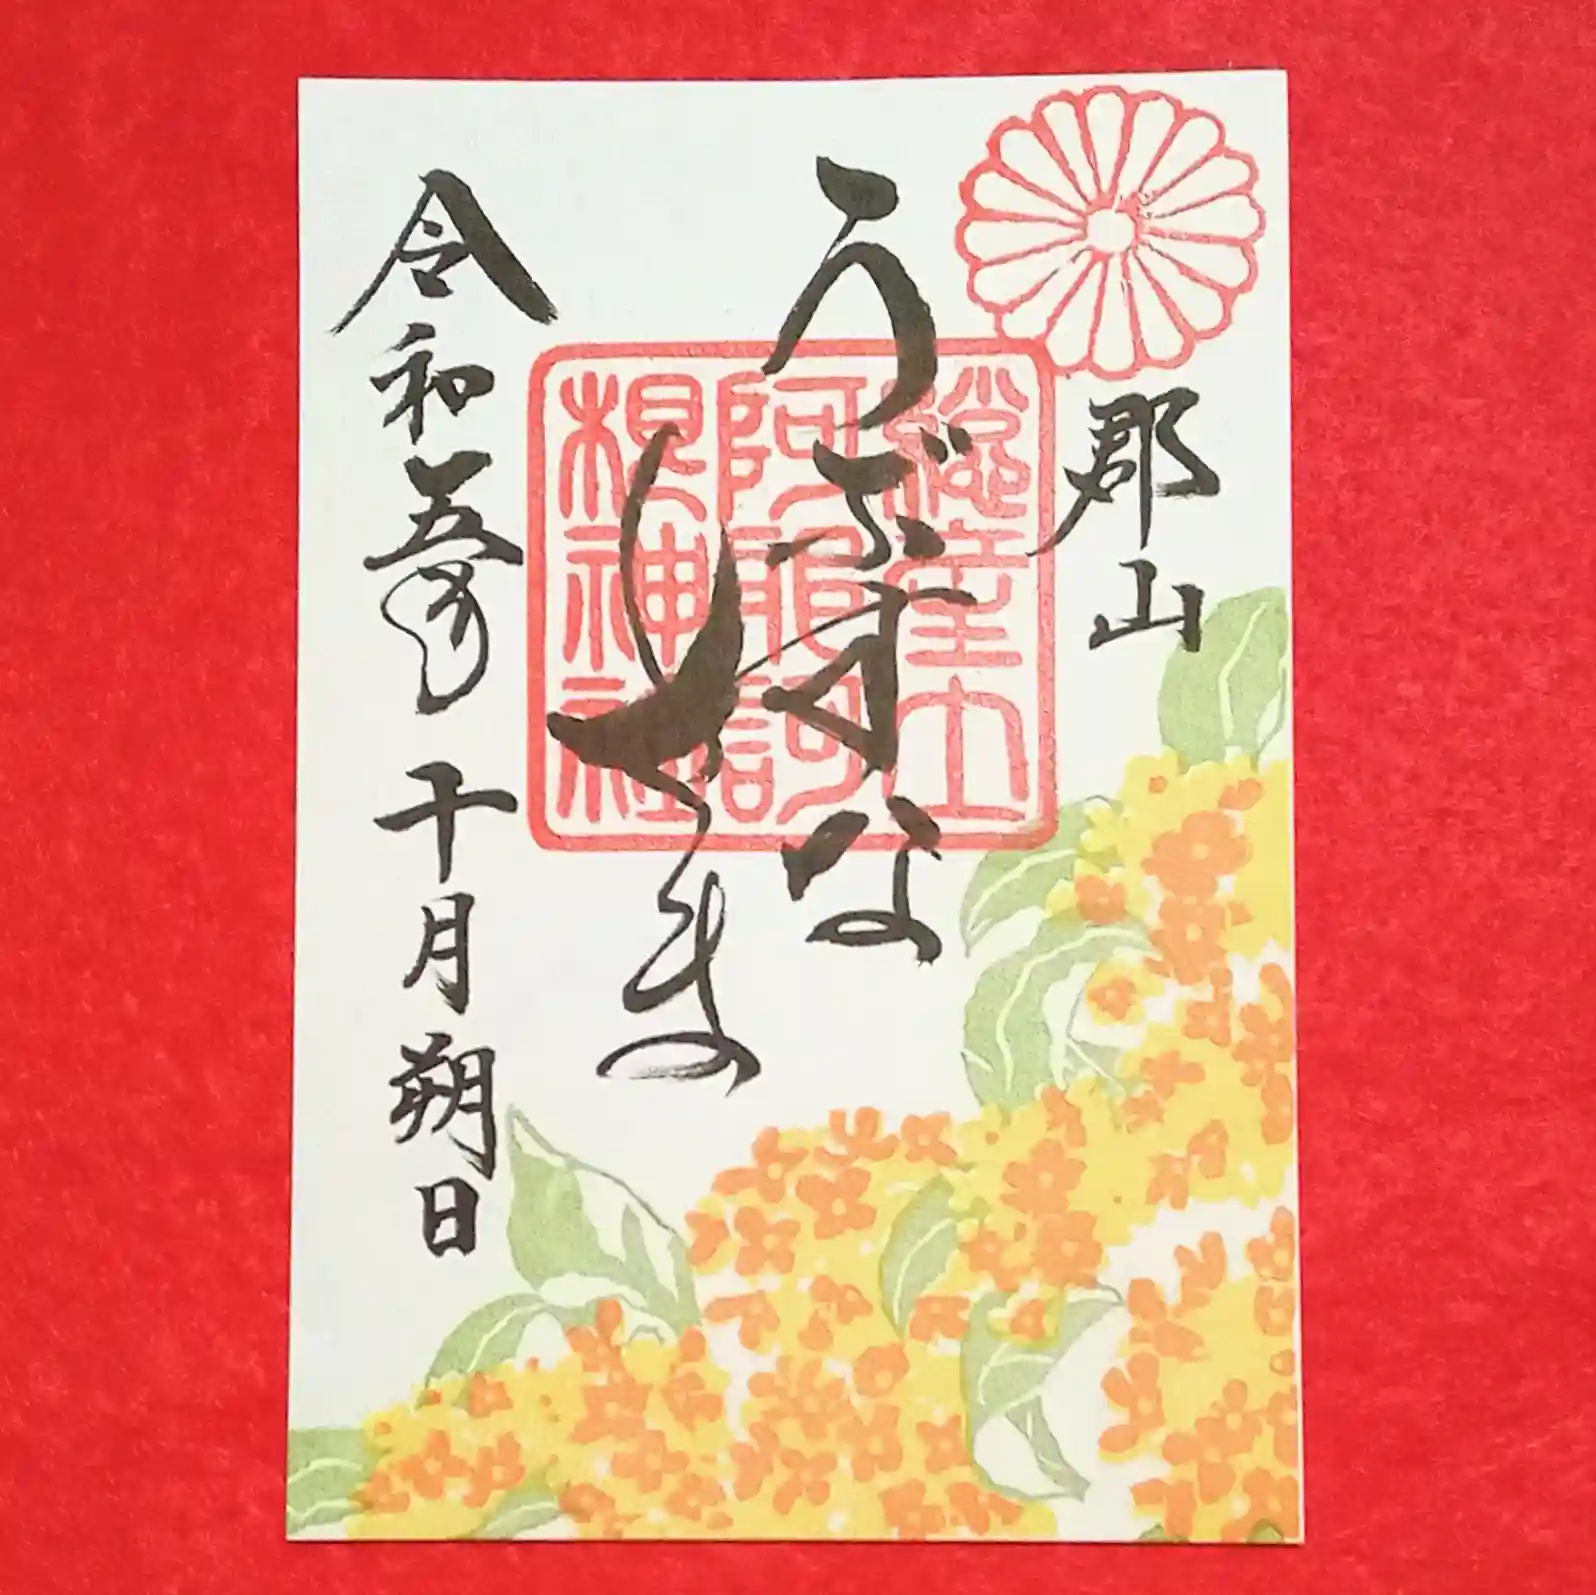 郡山
うぶすな
ま
総産土
阿邪訶
根神社
令和五年十月朔日